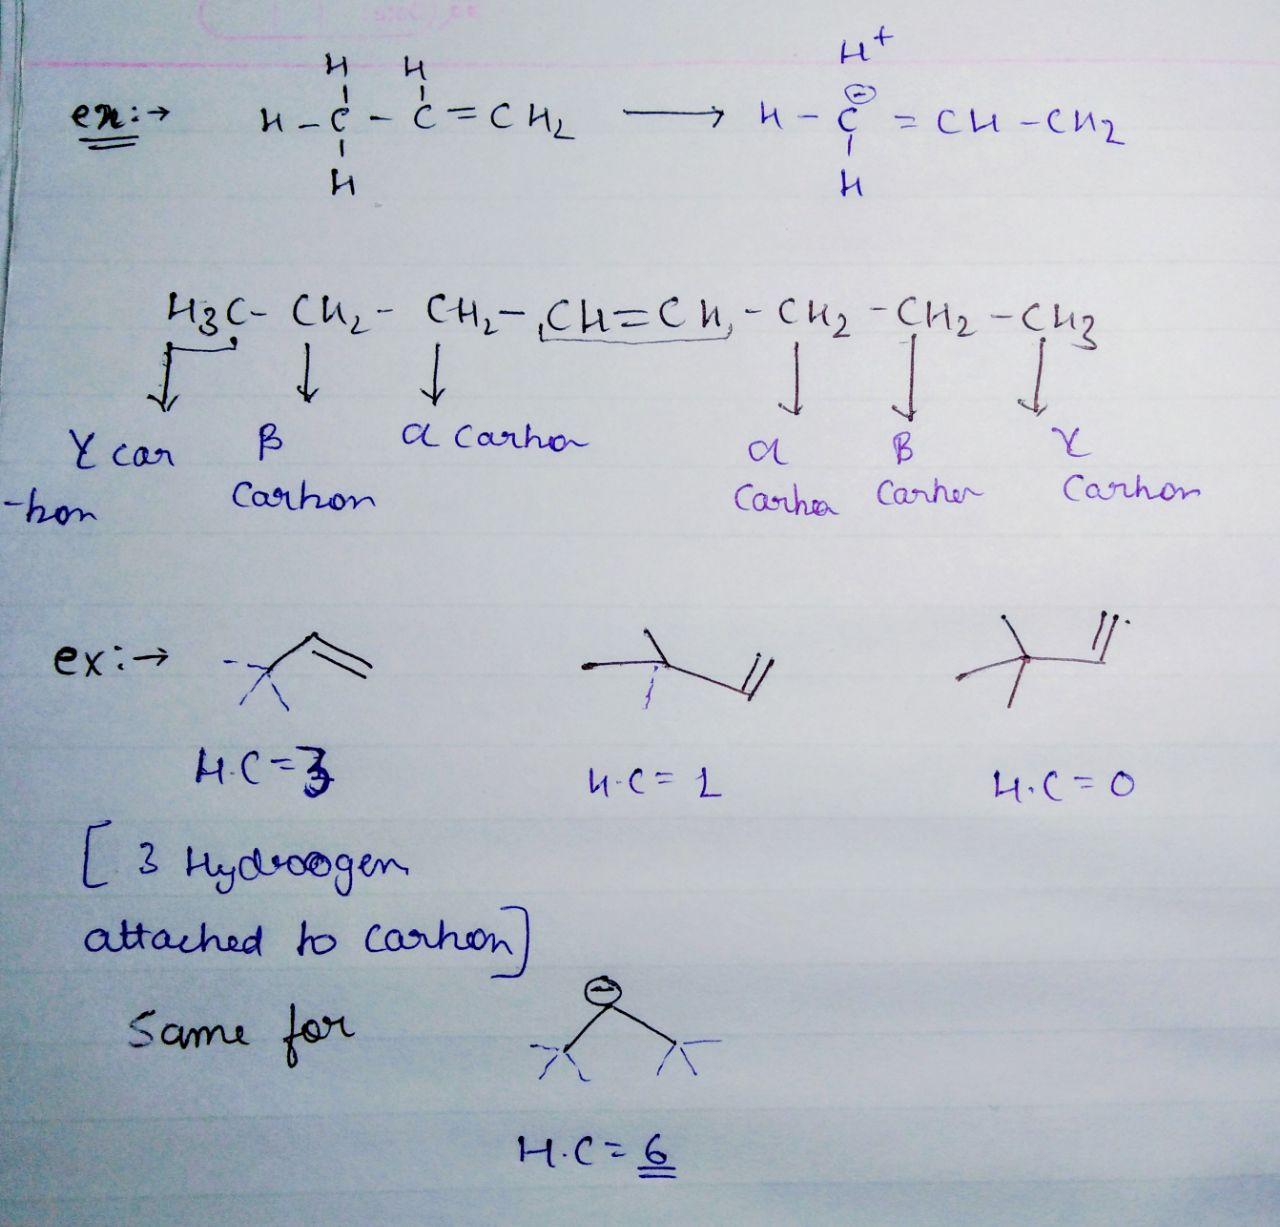 ex:→ H H H⁺
H - C - C = CH₂ ⟶ H - C⊖ = CH - CH₂
H H
H₃C - CH₂ - CH₂ - CH = CH - CH₂ - CH₂ - CH₃
γ car β α Carbon α β γ
-bon Carbon Carbon Carbon Carbon
ex:→
H.C = 3 H.C = 1 H.C = 0
[ 3 Hydroogen
attached to carbon]
Same for ⊖
H.C = 6